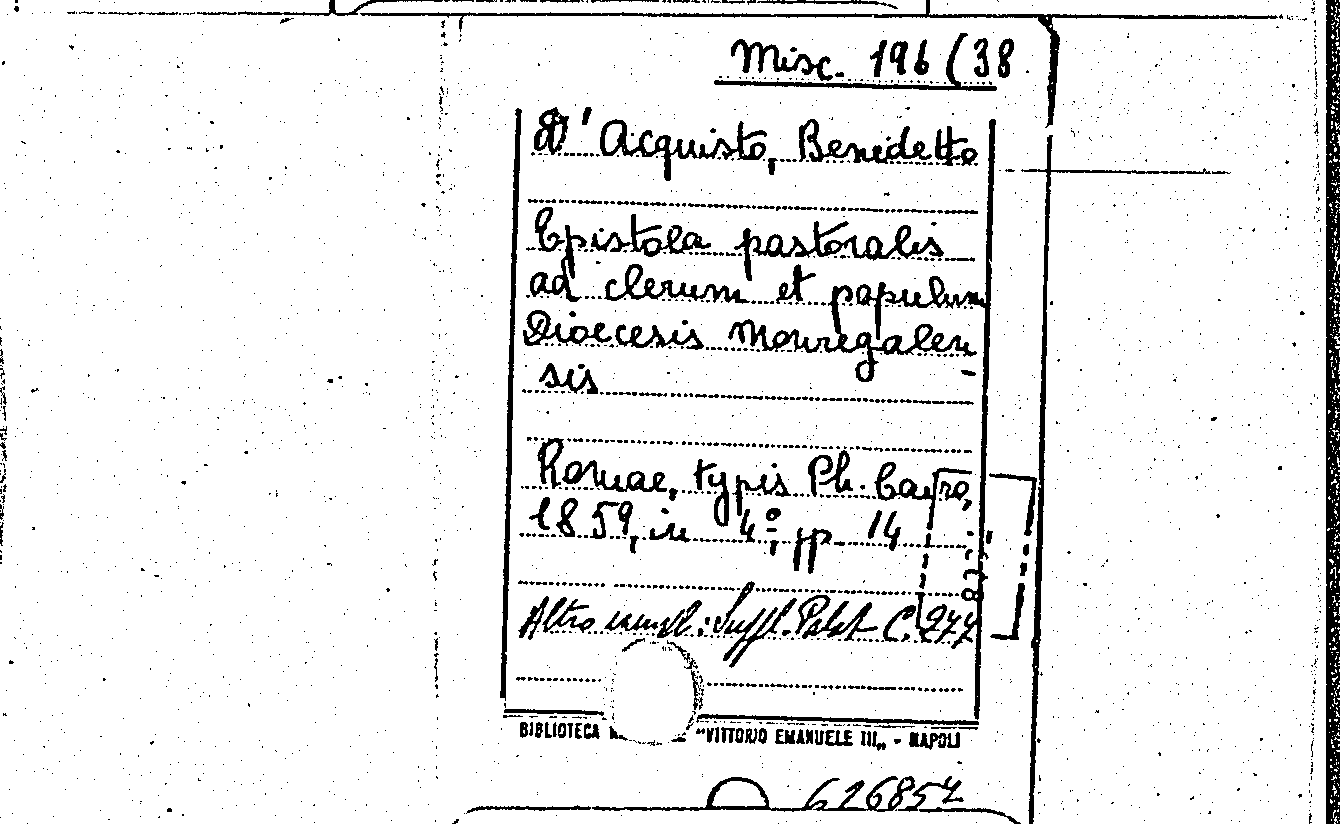 Misc. 196 (38
D' Acquisto, Benedetto
Epistola pastoralis
ad clerum et populum
Dioecesis Monregalen
sis
Romae, typis Ph. Cairo,
1859, in 4º, pp. 14
Altro esempl.: Suppl. Palat C. 277
BIBLIOTECA "VITTORIO EMANUELE III„ - NAPOLI
626857